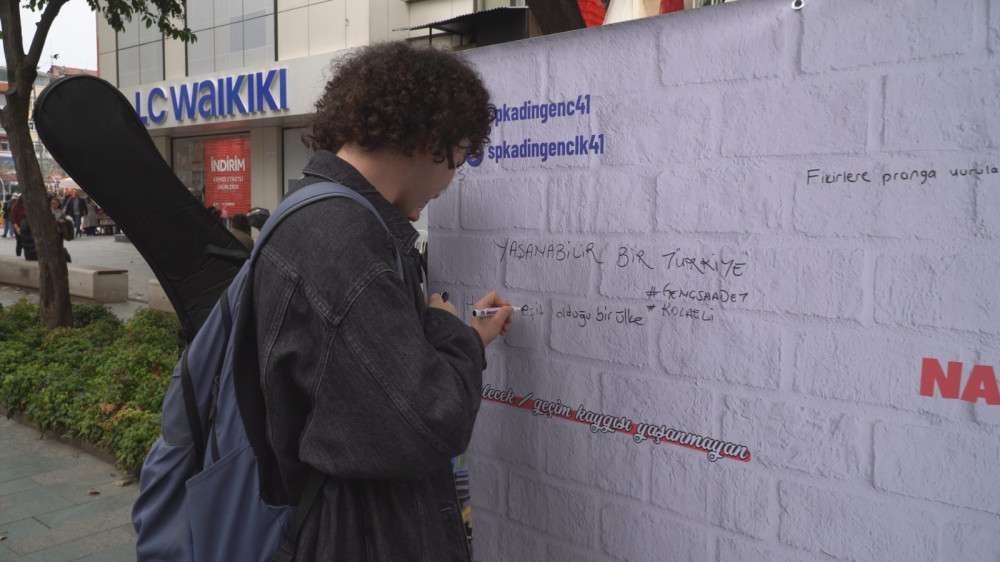 LC WAIKIKI
İNDİRİM
spkadingenc41
spkadingenclk41
Fikirlere pranga vurula
YAŞANABİLİR BİR TÜRKİYE
#GENÇSAADET
#KOCAELİ
olduğu bir ülke
/ geçim kaygısı yaşanmayan
NA